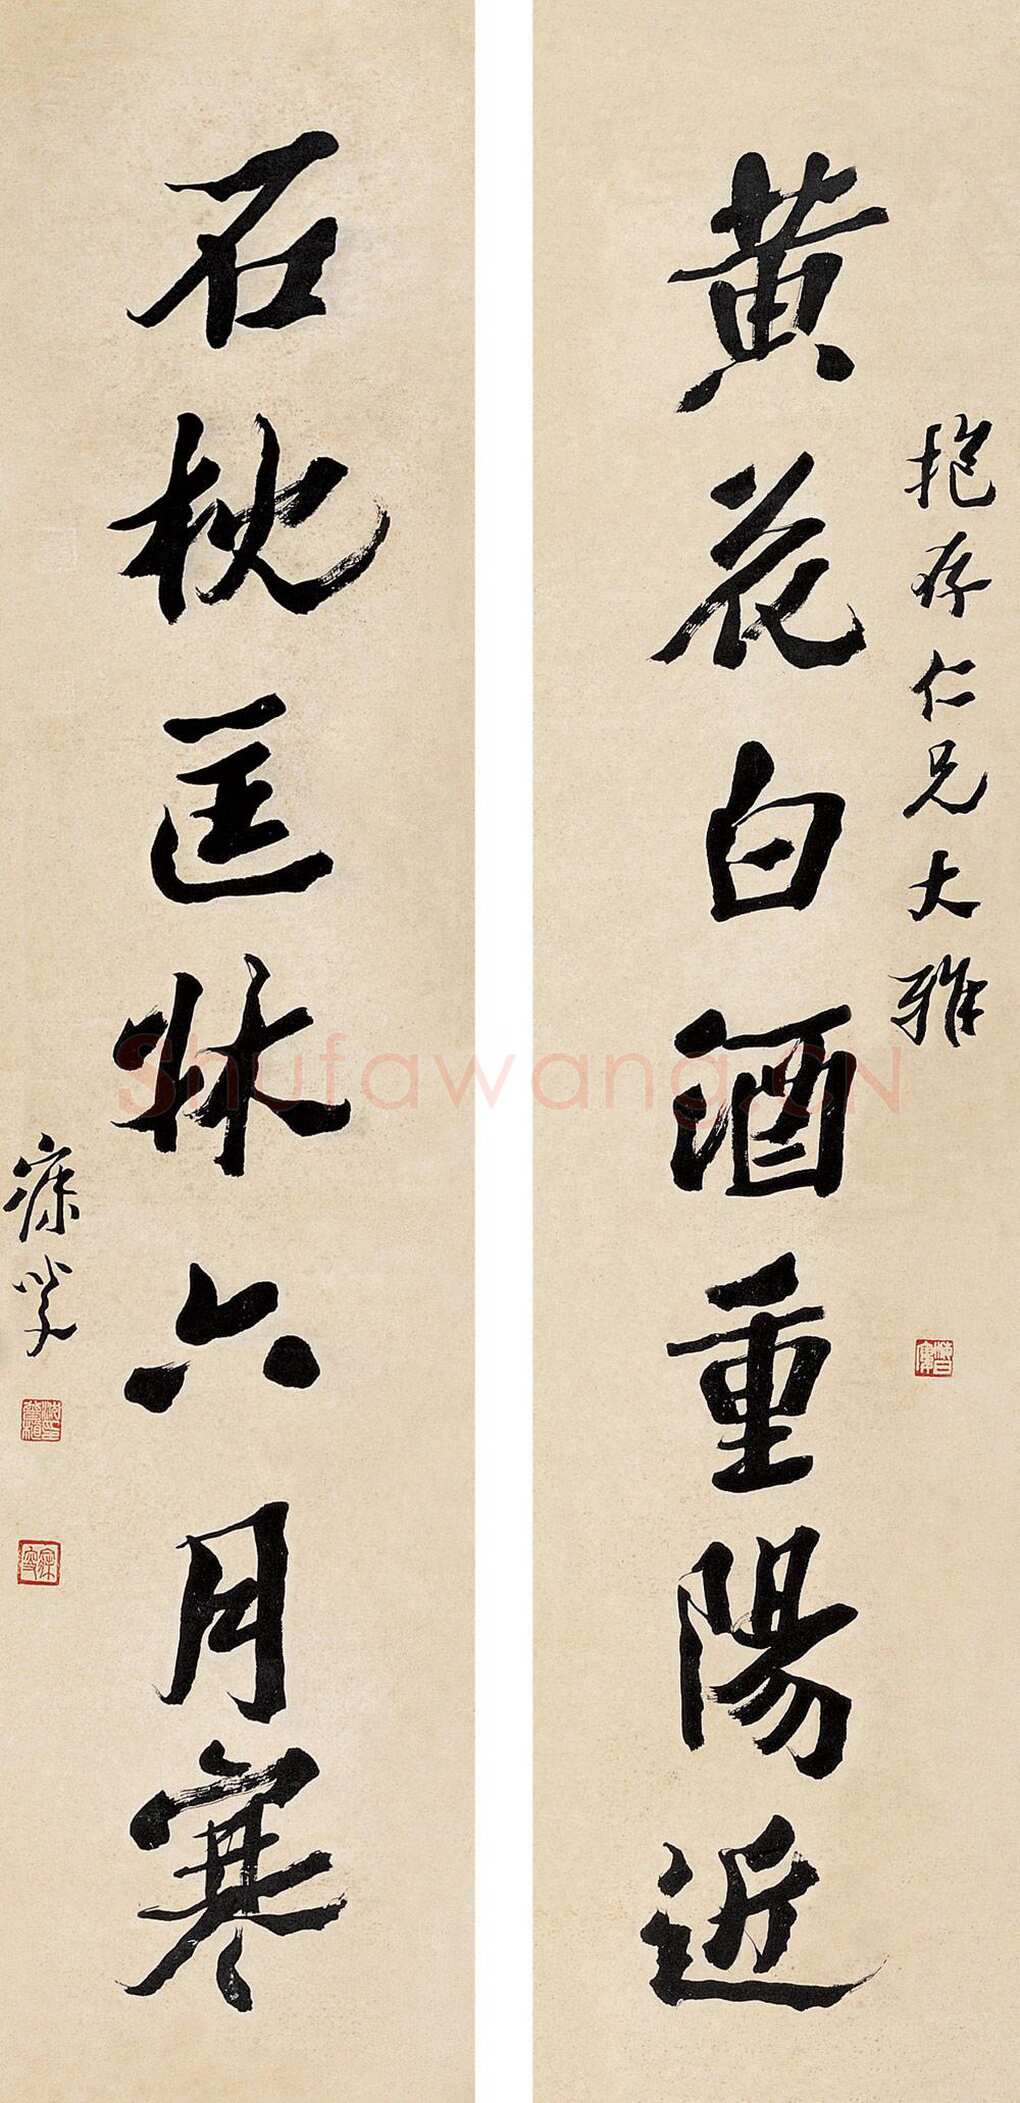 黄花白酒重陽近
抱存仁兄大雅
石枕匡牀六月寒
寐叟
Shufawang.CN